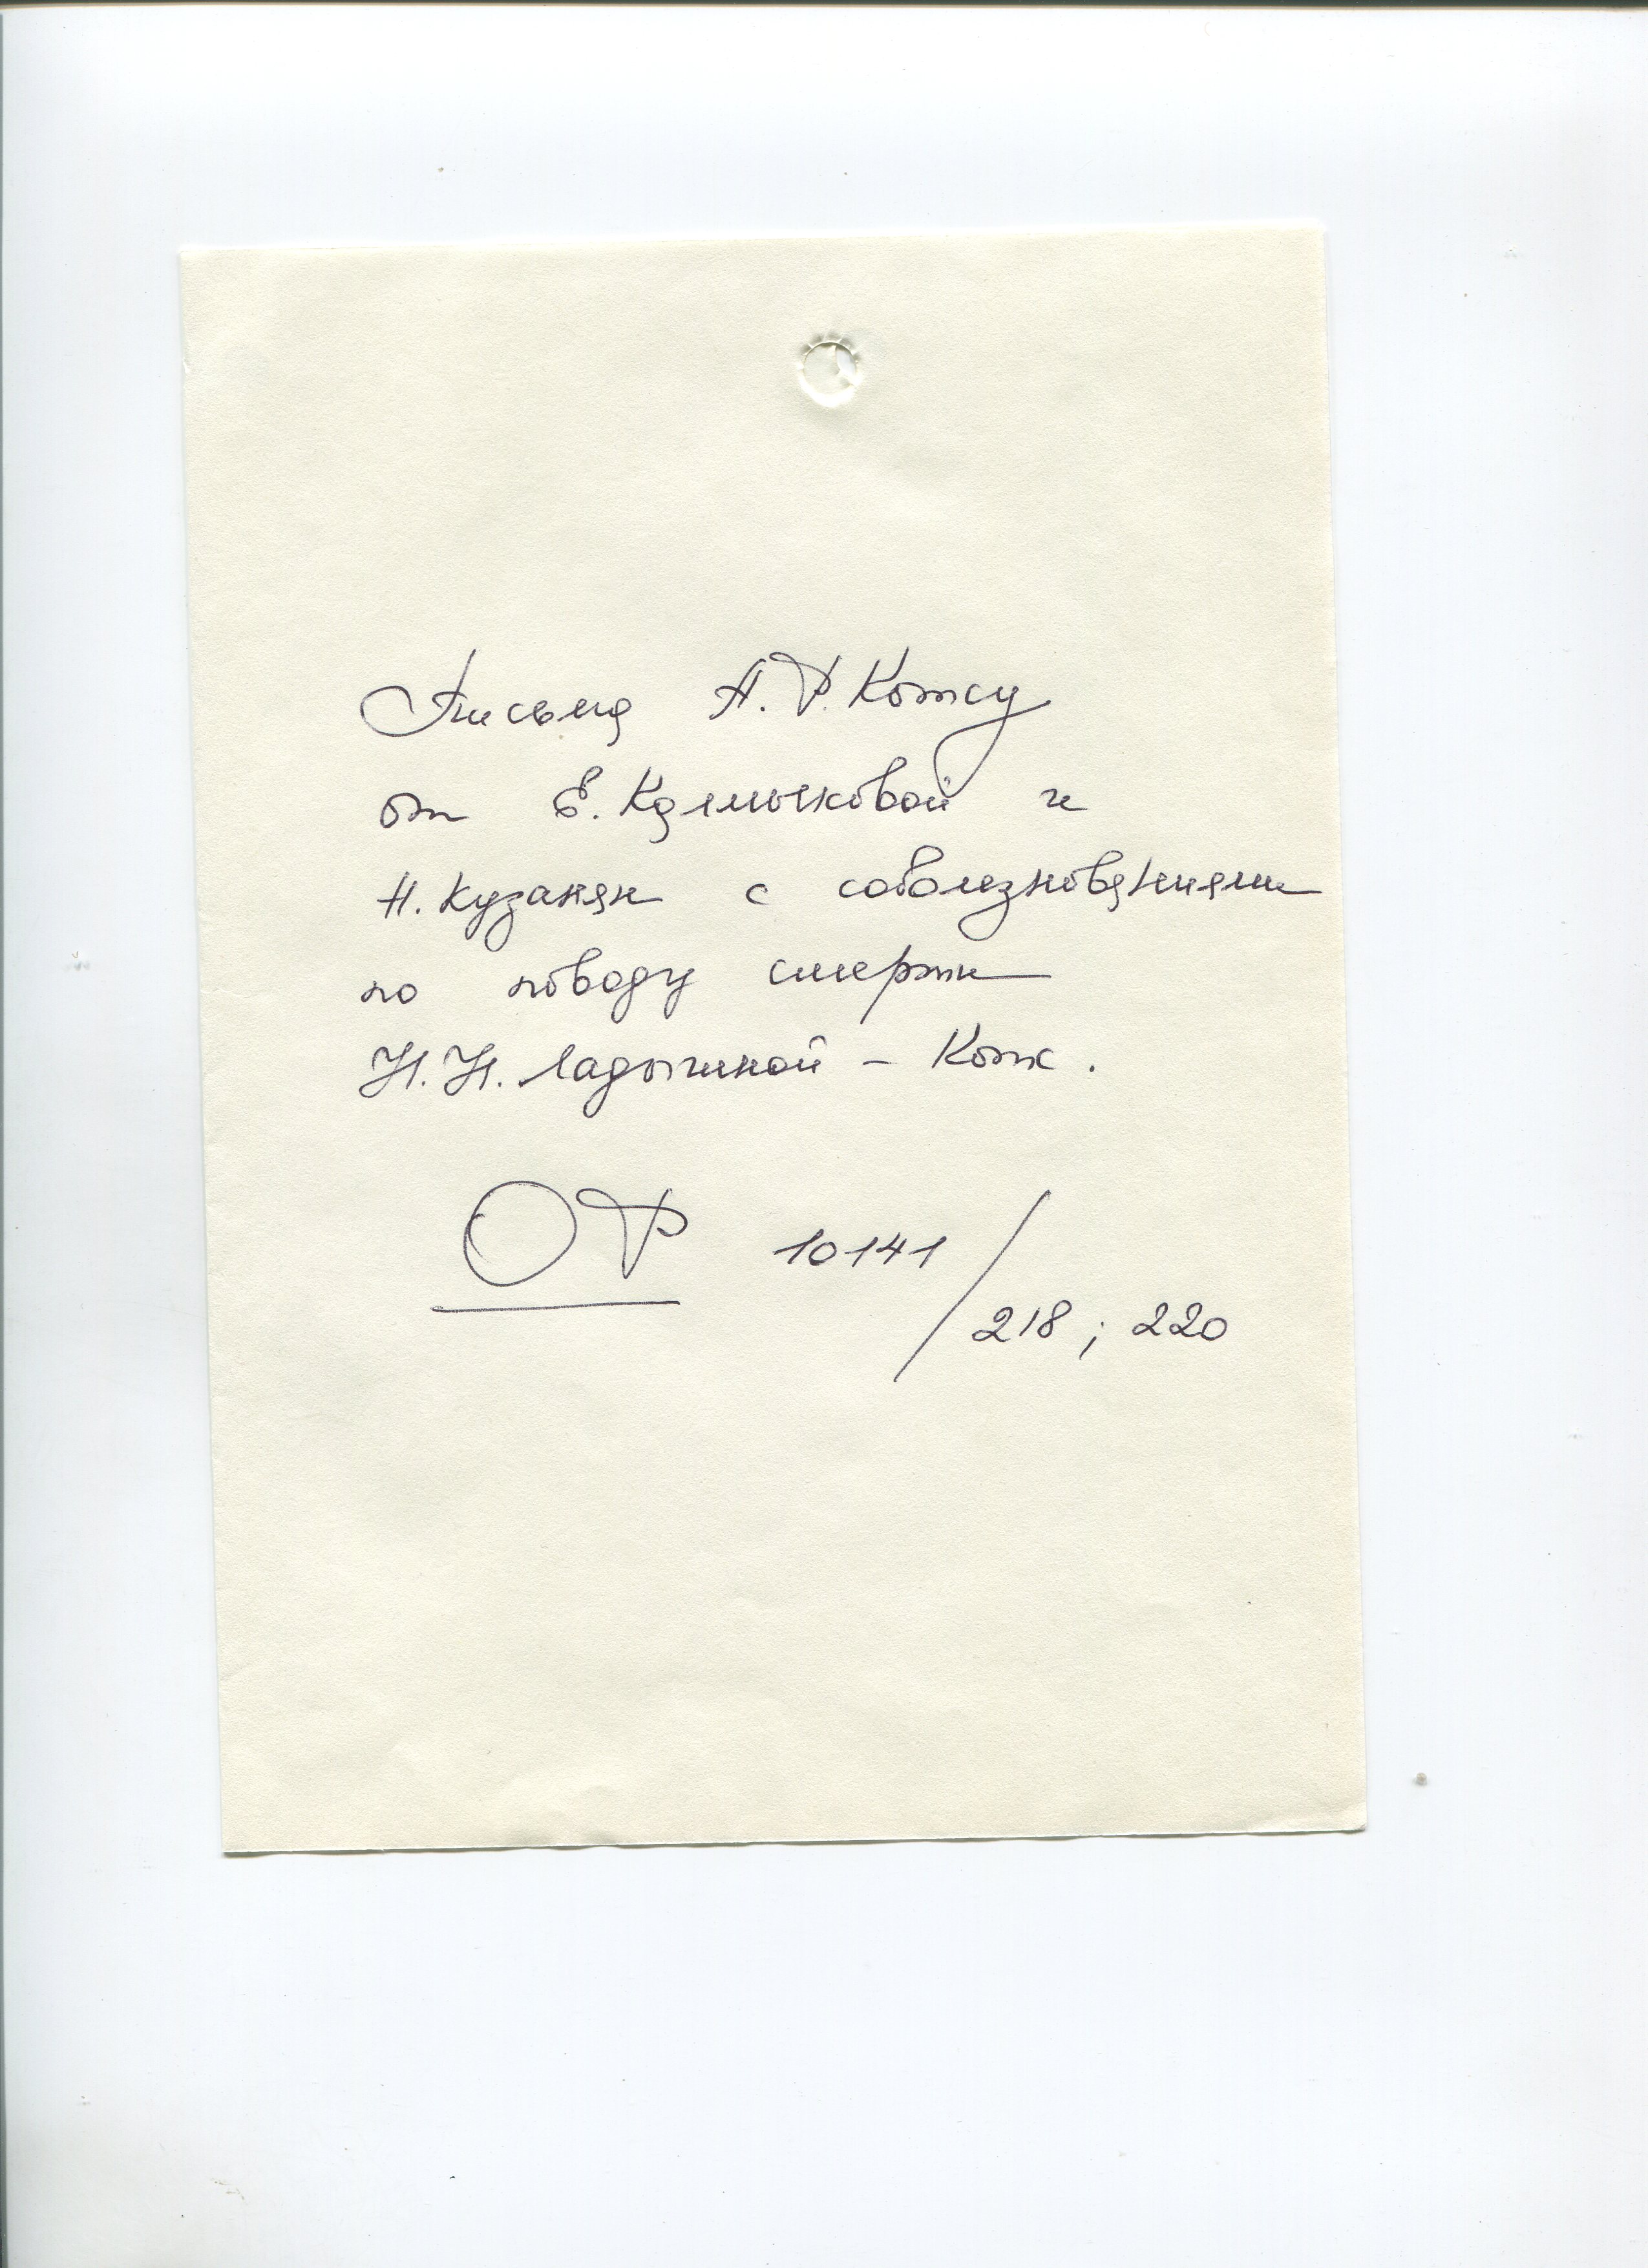 Письма А.Р. Котсу
от Е. Калмыковой и
Н. Кузанян с соболезнованиями
по поводу смерти
Н.Н. Ладыгиной – Котс.
ОР 10141
/218; 220